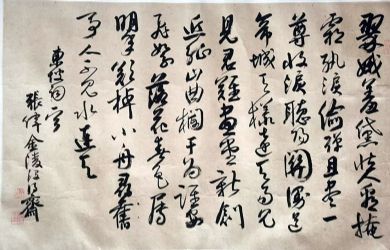 翠蛾羞黛怯人看掩
霜紈淚偷彈且盡一
尊收淚聽陽關謾道
帝城天樣遠天易見
見君難畫堂新創
近孤山曲欄干為誰安
飛絮落花春色屬
明年欲棹小舟尋舊
事人不見水連天
東坡詞
張偉金陵齋